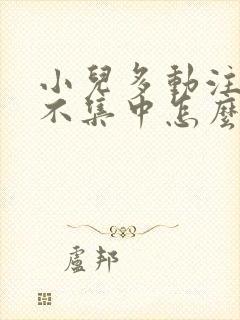 小兒多動注
不集中怎麼
盧邦